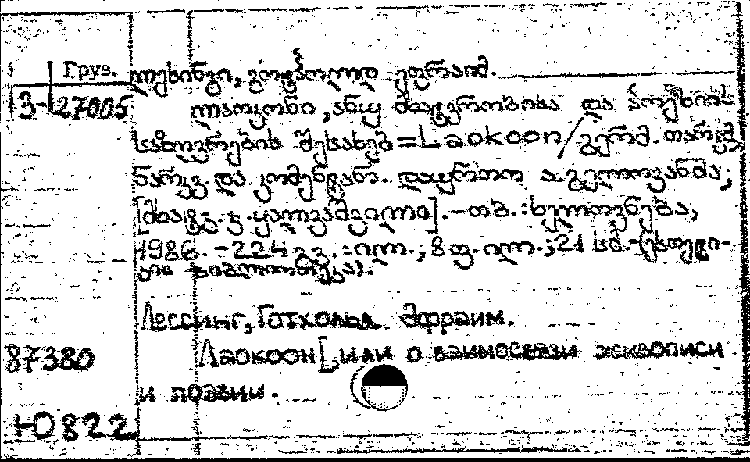 Груз.
ლესინგი, გოტჰოლდ ეფრაიმ.
3-27005
ლაოკონი, ანუ მხატვრობისა და პოეზიის
საზღვრების შესახებ = Laokoon / გერმ. თარგმ.
წინარკვ. და კომენტარ. დაურთო ა. გელოვანმა;
[მხატვ. ყალუაშვილი]. - თბ. : ხელოვნება,
1986. - 224 გვ. : ილ., 8 ფ. ილ.; 21 სმ. - (ესთეტი-
კის ბიბლიოთეკა).
Лессинг, Готхольд Эфраим.
87380
Лаокоон [или о взаимосвязи живописи
и поэзии.
Ю822